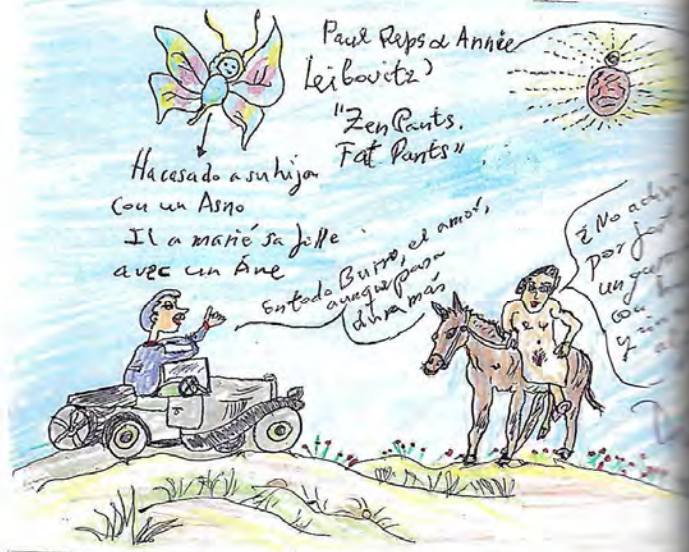 Paul Reps a Annie
Leibovitz)
"Zen Pants.
Fat Pants"
Ha casado a su hija
con un Asno
Il a marié sa fille
avec un Âne
En todo Burro, el amor,
aunque pasa
dura más
¿No
por
un
con
y sin